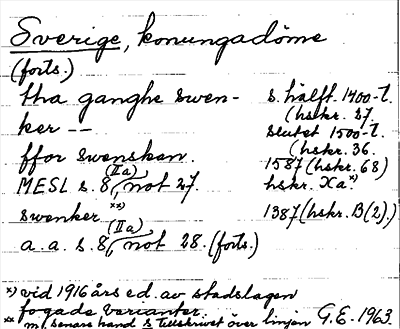 Sverige, konungadöme
(forts.)
tha ganghe swen- s. hälft. 1400-t.
ker -- (hskr. 37.
slutet 1500-t.
(hskr. 36.
ffor swenskan. 1587 (hskr. 68)
MESL s. 8 (IIa), not 27. hskr. Xa x)
swenker xx) 1387 (hskr. B(2).)
a.a. s. 8 (IIa), not 28. (forts.)
x) vid 1916 års ed. av stadslagen
fogade varianter.
xx m. senare hand s tillskrivet över linjen G.E. 1963.